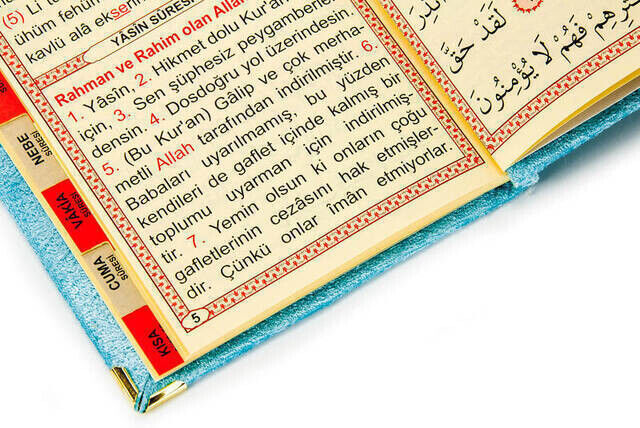 (5) Li
ühüm fehüm
kavlü alâ ekseri
YÂSİN SÛRESİ
Rahman ve Rahim olan Allah
1. Yâsîn, 2. Hikmet dolu Kur'an
için, 3. Sen şüphesiz peygamberler-
densin. 4. Dosdoğru yol üzerindesin.
5. (Bu Kur'an) Gâlip ve çok merha-
metli Allah tarafından indirilmiştir. 6.
Babaları uyarılmamış, bu yüzden
kendileri de gaflet içinde kalmış bir
toplumu uyarman için indirilmiş-
tir. 7. Yemin olsun ki onların çoğu
gafletlerinin cezâsını hak etmişler-
dir. Çünkü onlar imân etmiyorlar.
5
NEBE
SÛRESİ
VÂKIA
SÛRESİ
CUMA
SÛRESİ
KISA
لَقَدْ حَقَّ
فَهُمْ لَا يُؤْمِنُونَ